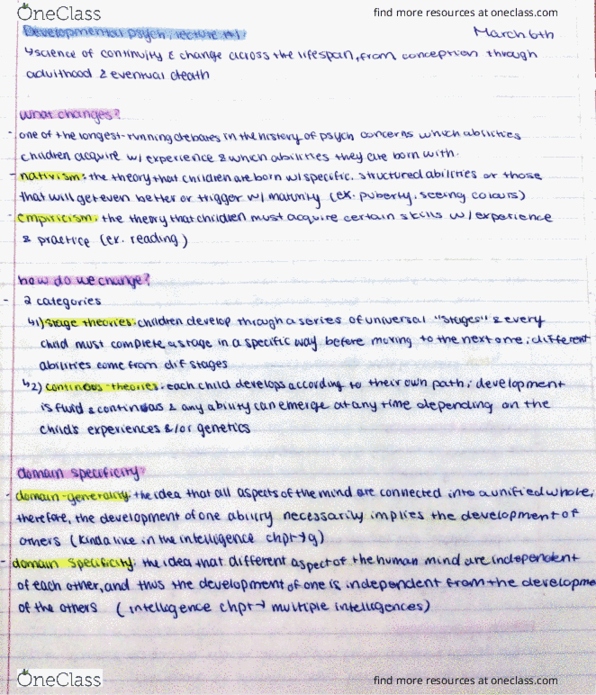 OneClass find more resources at oneclass.com
Developmental psych, lecture #1 March 6th
↳science of continuity & change across the lifespan, from conception through
adulthood & eventual death
what changes?
- one of the longest-running debates in the history of psych concerns which abilities
children acquire w/ experience & which abilities they are born with.
- nativism: the theory that children are born w/ specific, structured abilities or those
that will get even better or trigger w/ maturity (ex. puberty, seeing colours)
- empiricism: the theory that children must acquire certain skills w/ experience
& practice (ex. reading)
how do we change?
- 2 categories
↳1) stage theories: children develop through a series of universal "stages" & every
child must complete a stage in a specific way before moving to the next one; different
abilities come from dif stages
↳2) continous theories: each child develops according to their own path; development
is fluid & continuous & any ability can emerge at any time depending on the
child's experiences &/or genetics
domain specificity?
- domain-generality: the idea that all aspects of the mind are connected into a unified whole,
therefore, the development of one ability necessarily implies the development of
others (kinda like in the intelligence chpt→g)
- domain specificity: the idea that different aspect of the human mind are independent
of each other, and thus the development of one is independent from the developme
of the others (intelligence chpt→ multiple intelligences)
OneClass find more resources at oneclass.com